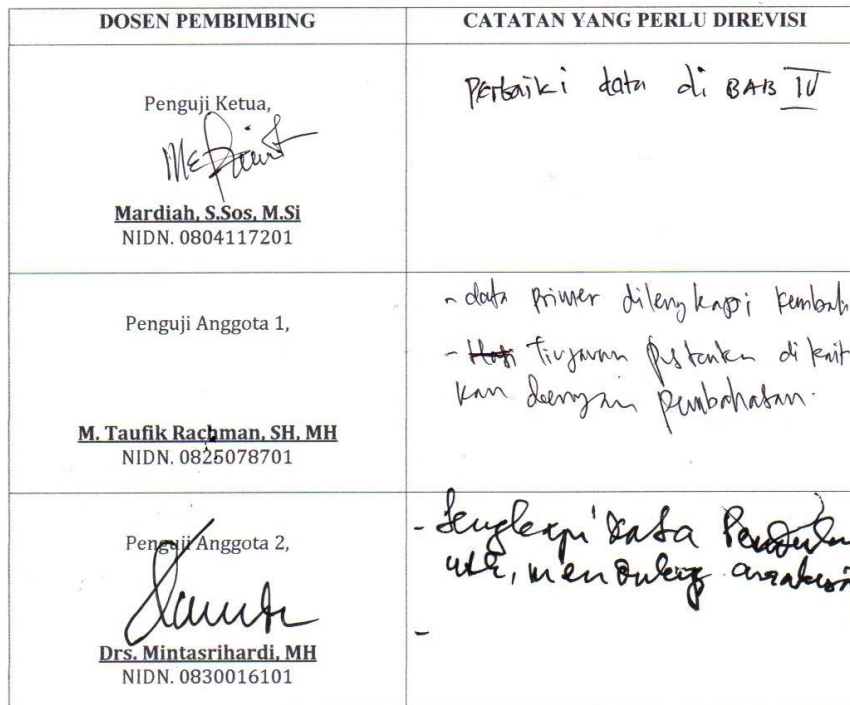 DOSEN PEMBIMBING
CATATAN YANG PERLU DIREVISI
Penguji Ketua,
Mardiah, S.Sos, M.Si
NIDN. 0804117201
Perbaiki data di BAB IV
Penguji Anggota 1,
M. Taufik Rachman, SH, MH
NIDN. 0825078701
- data primer dilengkapi kembali
- Tinjauan pustaka di kait
kan dengan pembahasan.
Penguji Anggota 2,
Drs. Mintasrihardi, MH
NIDN. 0830016101
- Lengkapi data
utk, mendukung
-